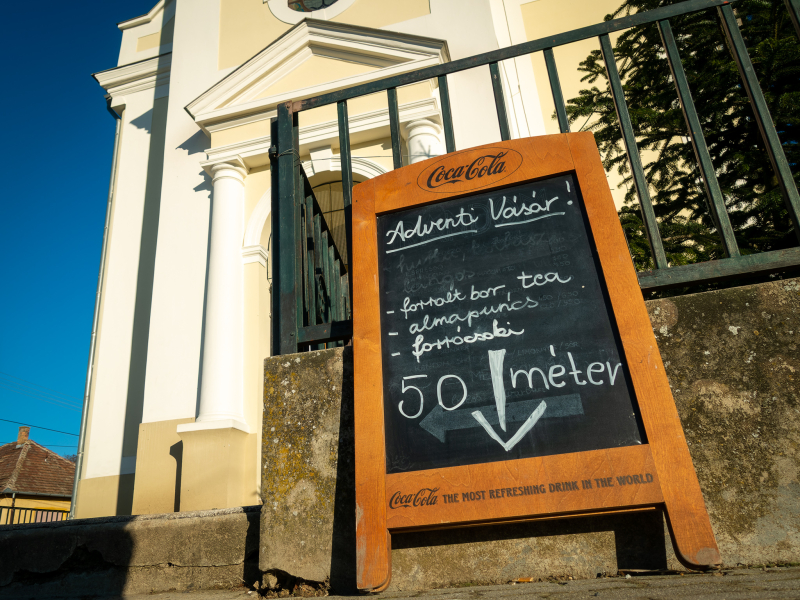 Coca-Cola
Adventi Vásár!
- forralt bor, tea
- almapuncs
- forrócsoki
50 méter
Coca-Cola THE MOST REFRESHING DRINK IN THE WORLD